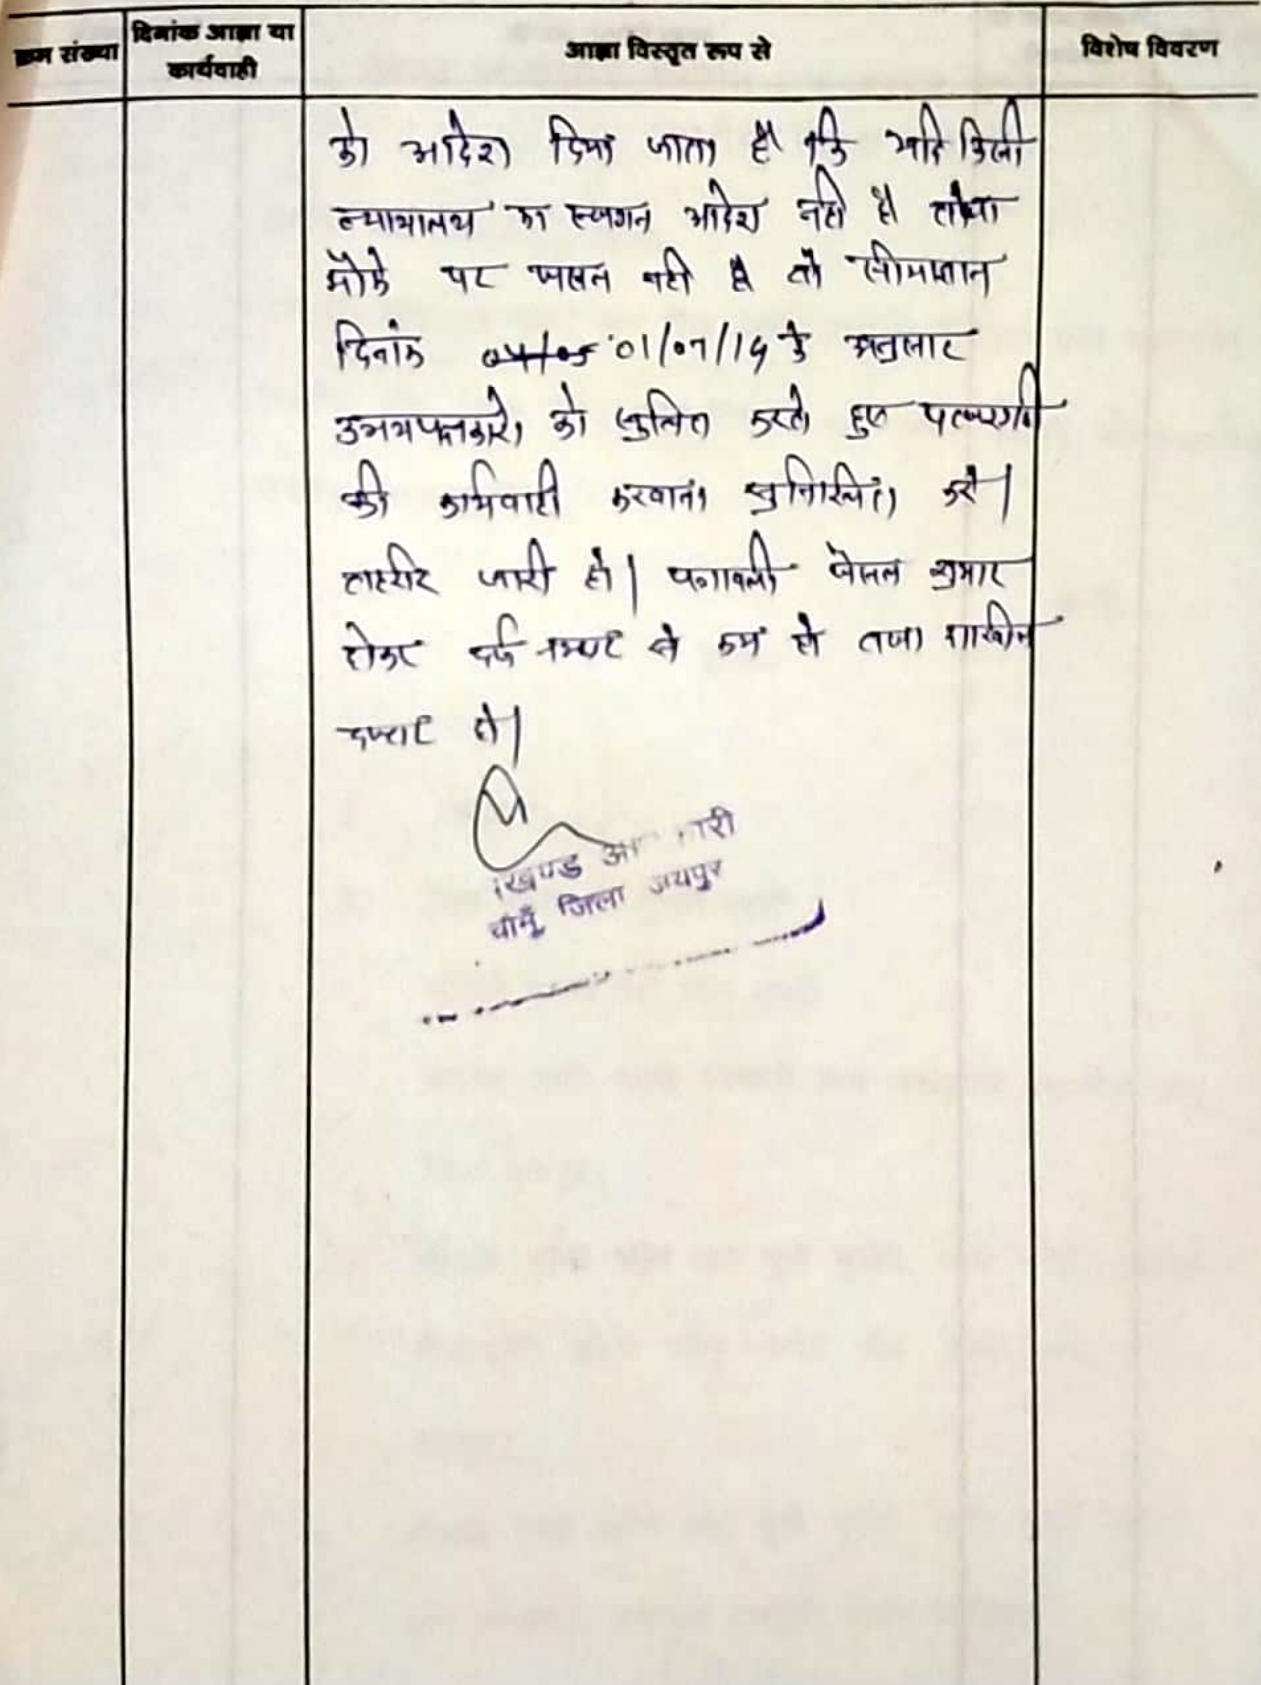 क्रम संख्या
दिनांक आज्ञा या
कार्यवाही
आज्ञा विस्तृत रूप से
विशेष विवरण
को आदेश दिया जाता है कि यदि किसी
न्यायालय का स्थगन आदेश नही है तथा
मौके पर फसल नही है तो सीमाज्ञान
दिनांक 01/07/14 के अनुसार
उभयपक्षकारो को सुचित करते हुए पत्थरगढी
की कार्यवाही करवाना सुनिश्चित करे।
तहरीर जारी हो। पत्रावली फैसल शुमार
होकर दर्ज नम्बर से कम हो तथा दाखिल
दफ्तर हो।
खण्ड
चौमूँ जिला जयपुर